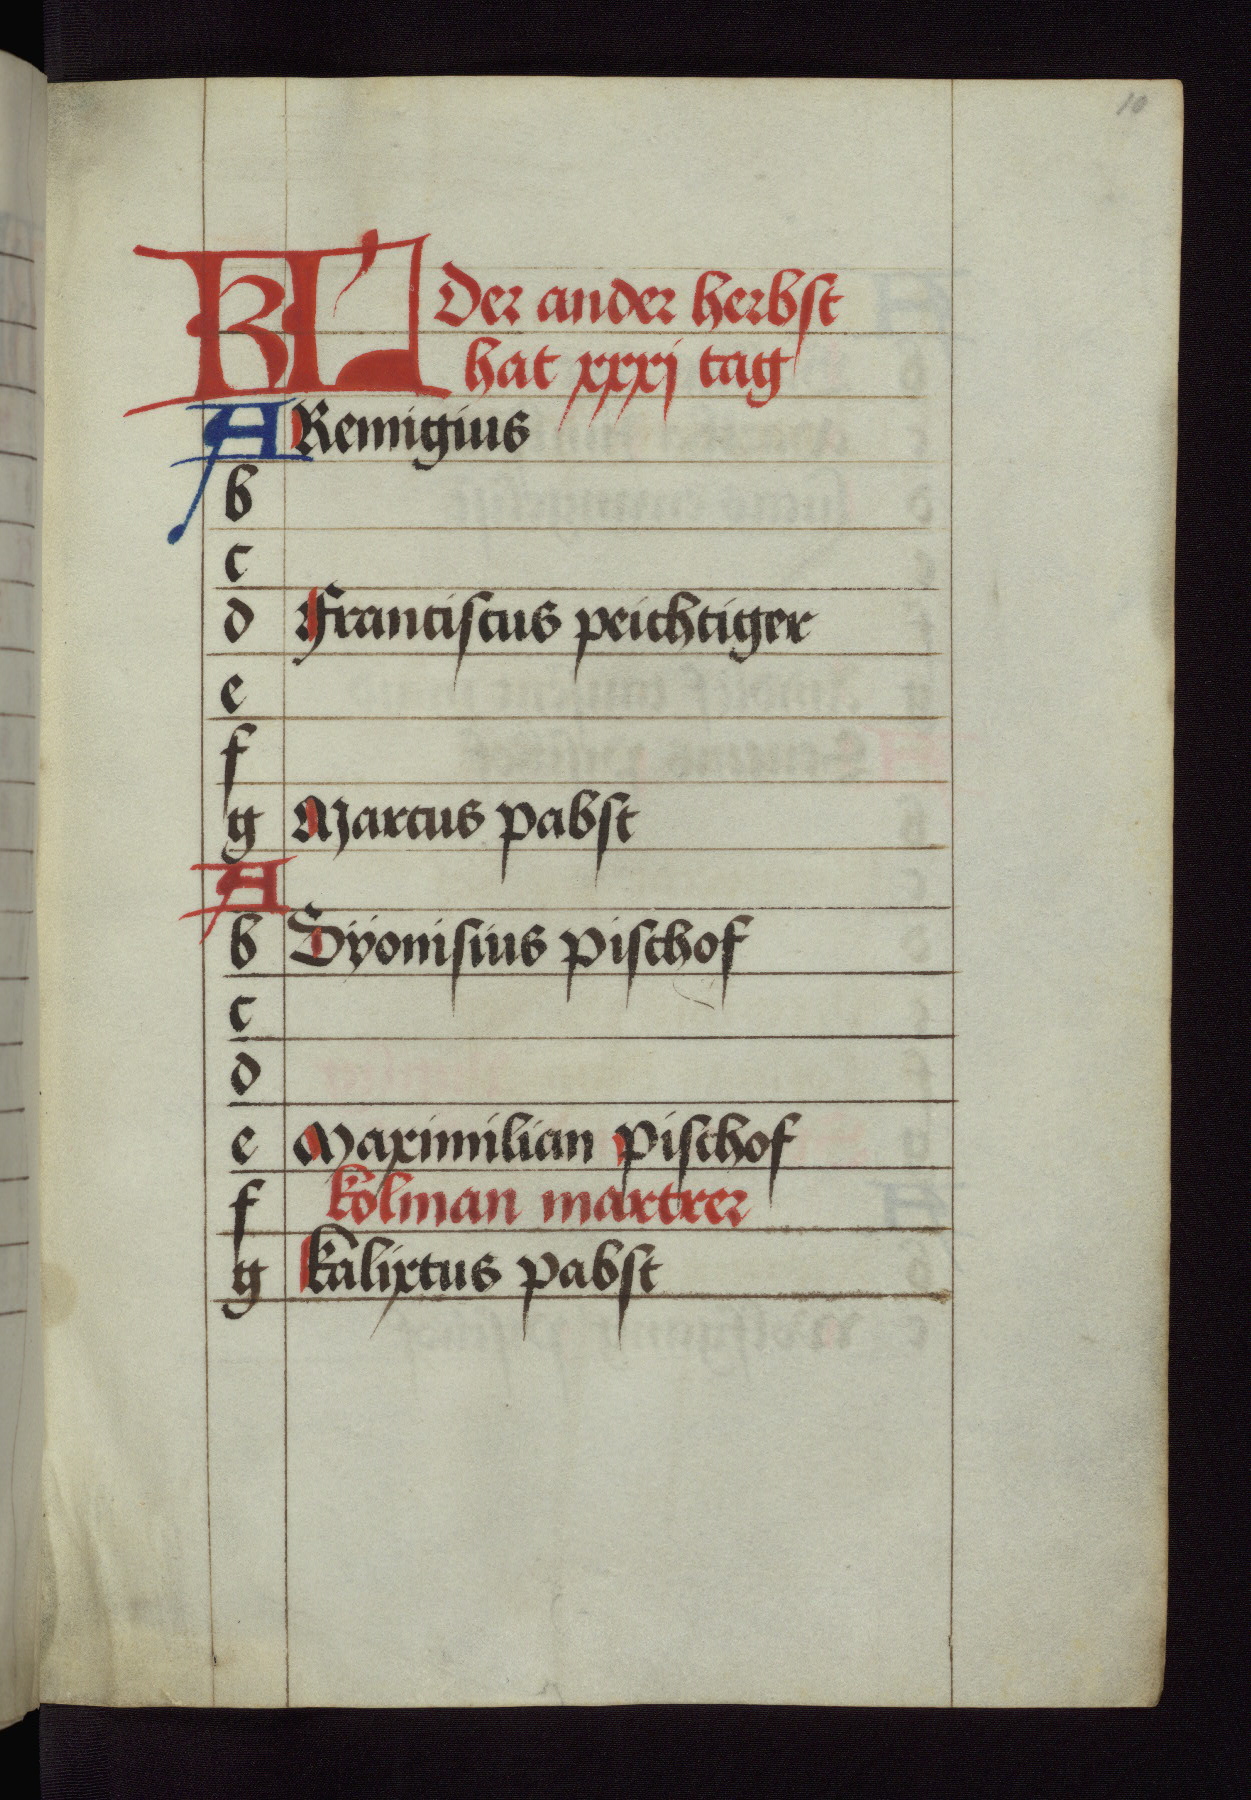 10
KL Der ander herbst
hat xxxj tag
A Remigius
b
c
d Franciscus peichtiger
e
f
g Marcus pabst
A
b Dÿonisius pischof
c
d
e Maximilian pischof
f kolman martrer
g kalixtus pabst